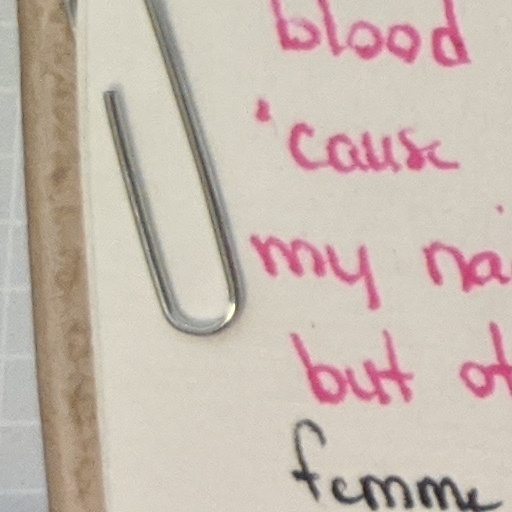 blood
'cause
my na
but of
femme